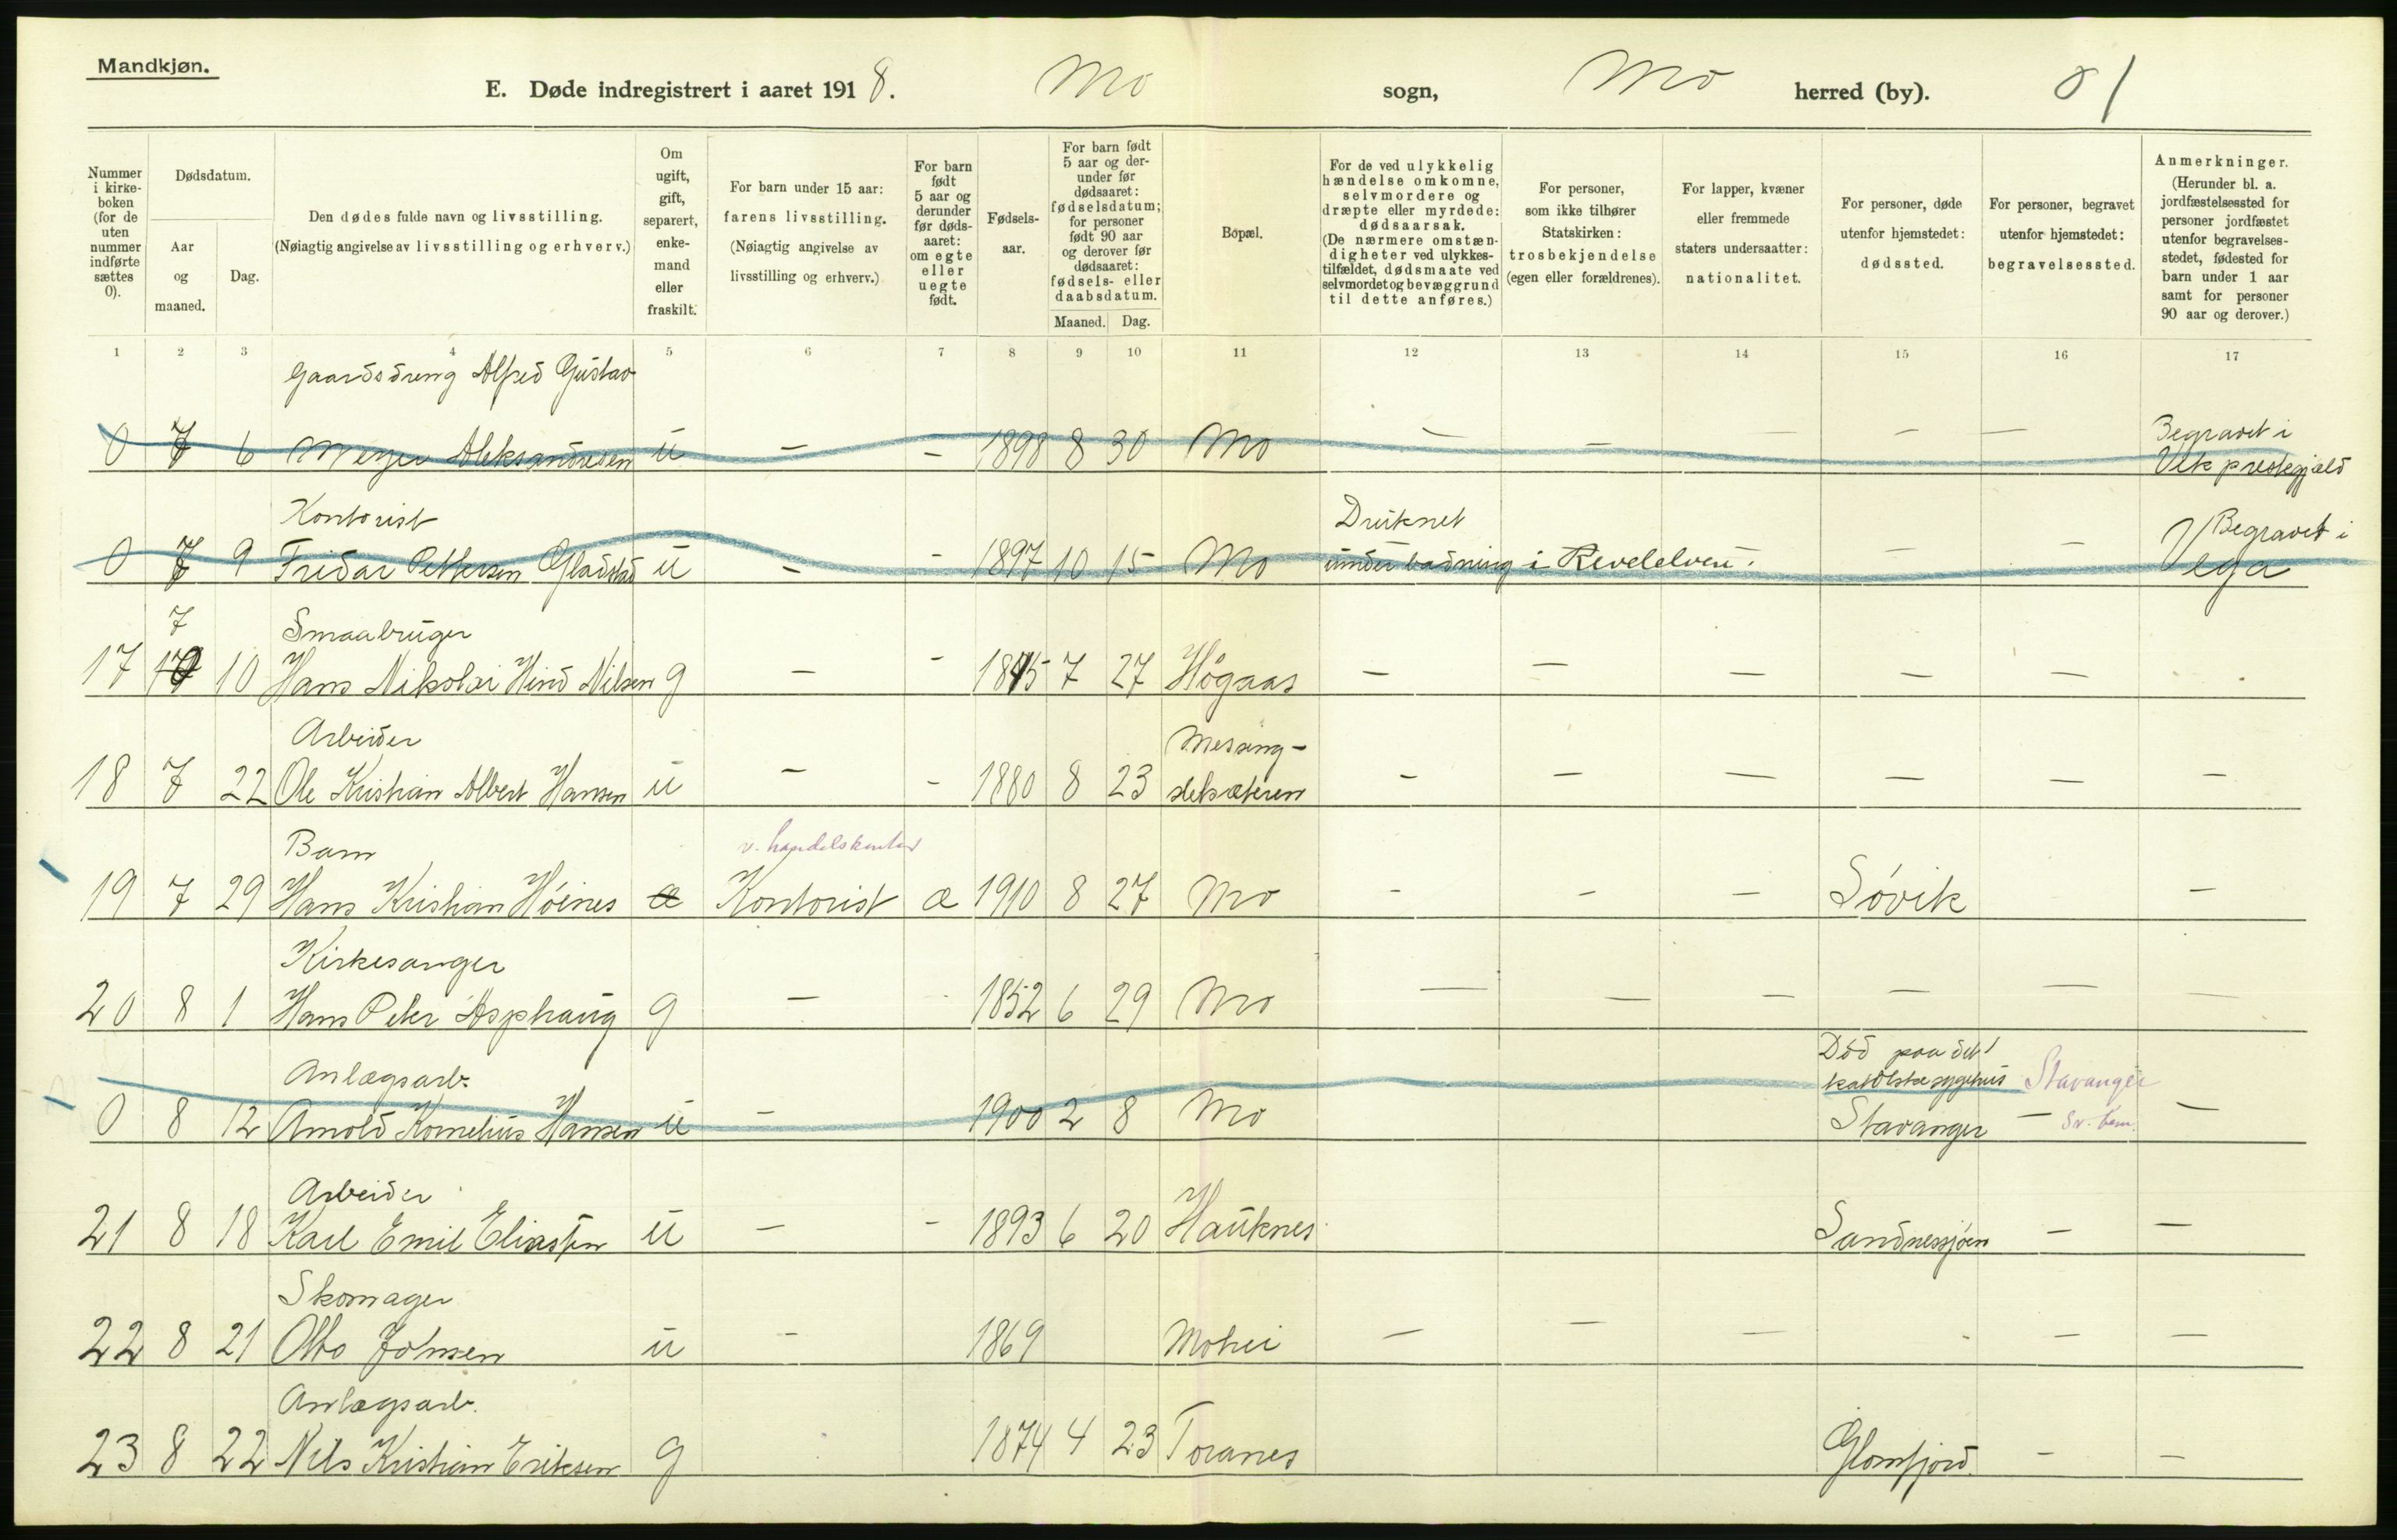 Mandkjøn.
E. Døde indregistrert i aaret 1918. Mo sogn, Mo herred (by). 81
Nummer i kirkeboken (for de uten nummer indførte sættes 0).
Dødsdatum.
Aar og maaned.
Dag.
Den dødes fulde navn og livsstilling. (Nøiagtig angivelse av livsstilling og erhverv.)
Om ugift, gift, separert, enkemand eller fraskilt.
For barn under 15 aar: farens livsstilling. (Nøiagtig angivelse av livsstilling og erhverv.)
For barn født 5 aar og derunder før dødsaaret: om egte eller uegte født.
Fødselsaar.
For barn født 5 aar og derunder før dødsaaret: fødselsdatum; for personer født 90 aar og derover før dødsaaret: fødsels- eller daabsdatum.
Maaned. Dag.
Bopæl.
For de ved ulykkelig hændelse omkomne, selvmordere og dræpte eller myrdede: dødsaarsak. (De nærmere omstændigheter ved ulykkestilfældet, dødsmaate ved selvmordet og bevæggrund til dette anføres.)
For personer, som ikke tilhører Statskirken: trosbekjendelse (egen eller forældrenes).
For lapper, kvæner eller fremmede staters undersaatter: nationalitet.
For personer, døde utenfor hjemstedet: dødssted.
For personer, begravet utenfor hjemstedet: begravelsessted.
Anmerkninger. (Herunder bl. a. jordfæstelsessted for personer jordfæstet utenfor begravelsesstedet, fødested for barn under 1 aar samt for personer 90 aar og derover.)
1 2 3 4 5 6 7 8 9 10 11 12 13 14 15 16 17
Gaardsdreng Alfred Gustav
0 7 6 Meyer Aleksandersen u - - 1898 8 30 Mo - - - - - Begravet i
prestegjeld
Kontorist Druknet Begravet i
0 7 9 Fridar Pettersen Gladstad u - - 1897 10 15 Mo under badning i Revelelven. - - Vega
7 Smaabruger
17 10 Hans Nikolai Hind Nilsen g - - 1845 7 27 Høgaas - - - - -
Arbeider Messing-
18 7 22 Ole Kristian Albert Hansen u - - 1880 8 23 sletsæteren - - - - - -
Barn v. handelskontor
19 7 29 Hans Kristian Høines æ Kontorist æ 1910 8 27 Mo - - - Søvik -
Kirkesanger
20 8 1 Hans Peter Asphaug g - 1852 6 29 Mo - - - - - -
Anlægsarb. Død paa det
katolske sygehus Stavanger
0 8 12 Arnold Kornelius Hansen u - 1900 2 8 Mo Stavanger - -
Arbeider
21 8 18 Karl Emil Eliassen u - - 1893 6 20 Hauknes Sandnessjøen - -
Skomager
22 8 21 Otto Johnsen u - 1869 Mohei - - - - - -
Anlægsarb.
23 8 22 Nils Kristian Eriksen g 1874 4 23 Toranes Glomfjord - -